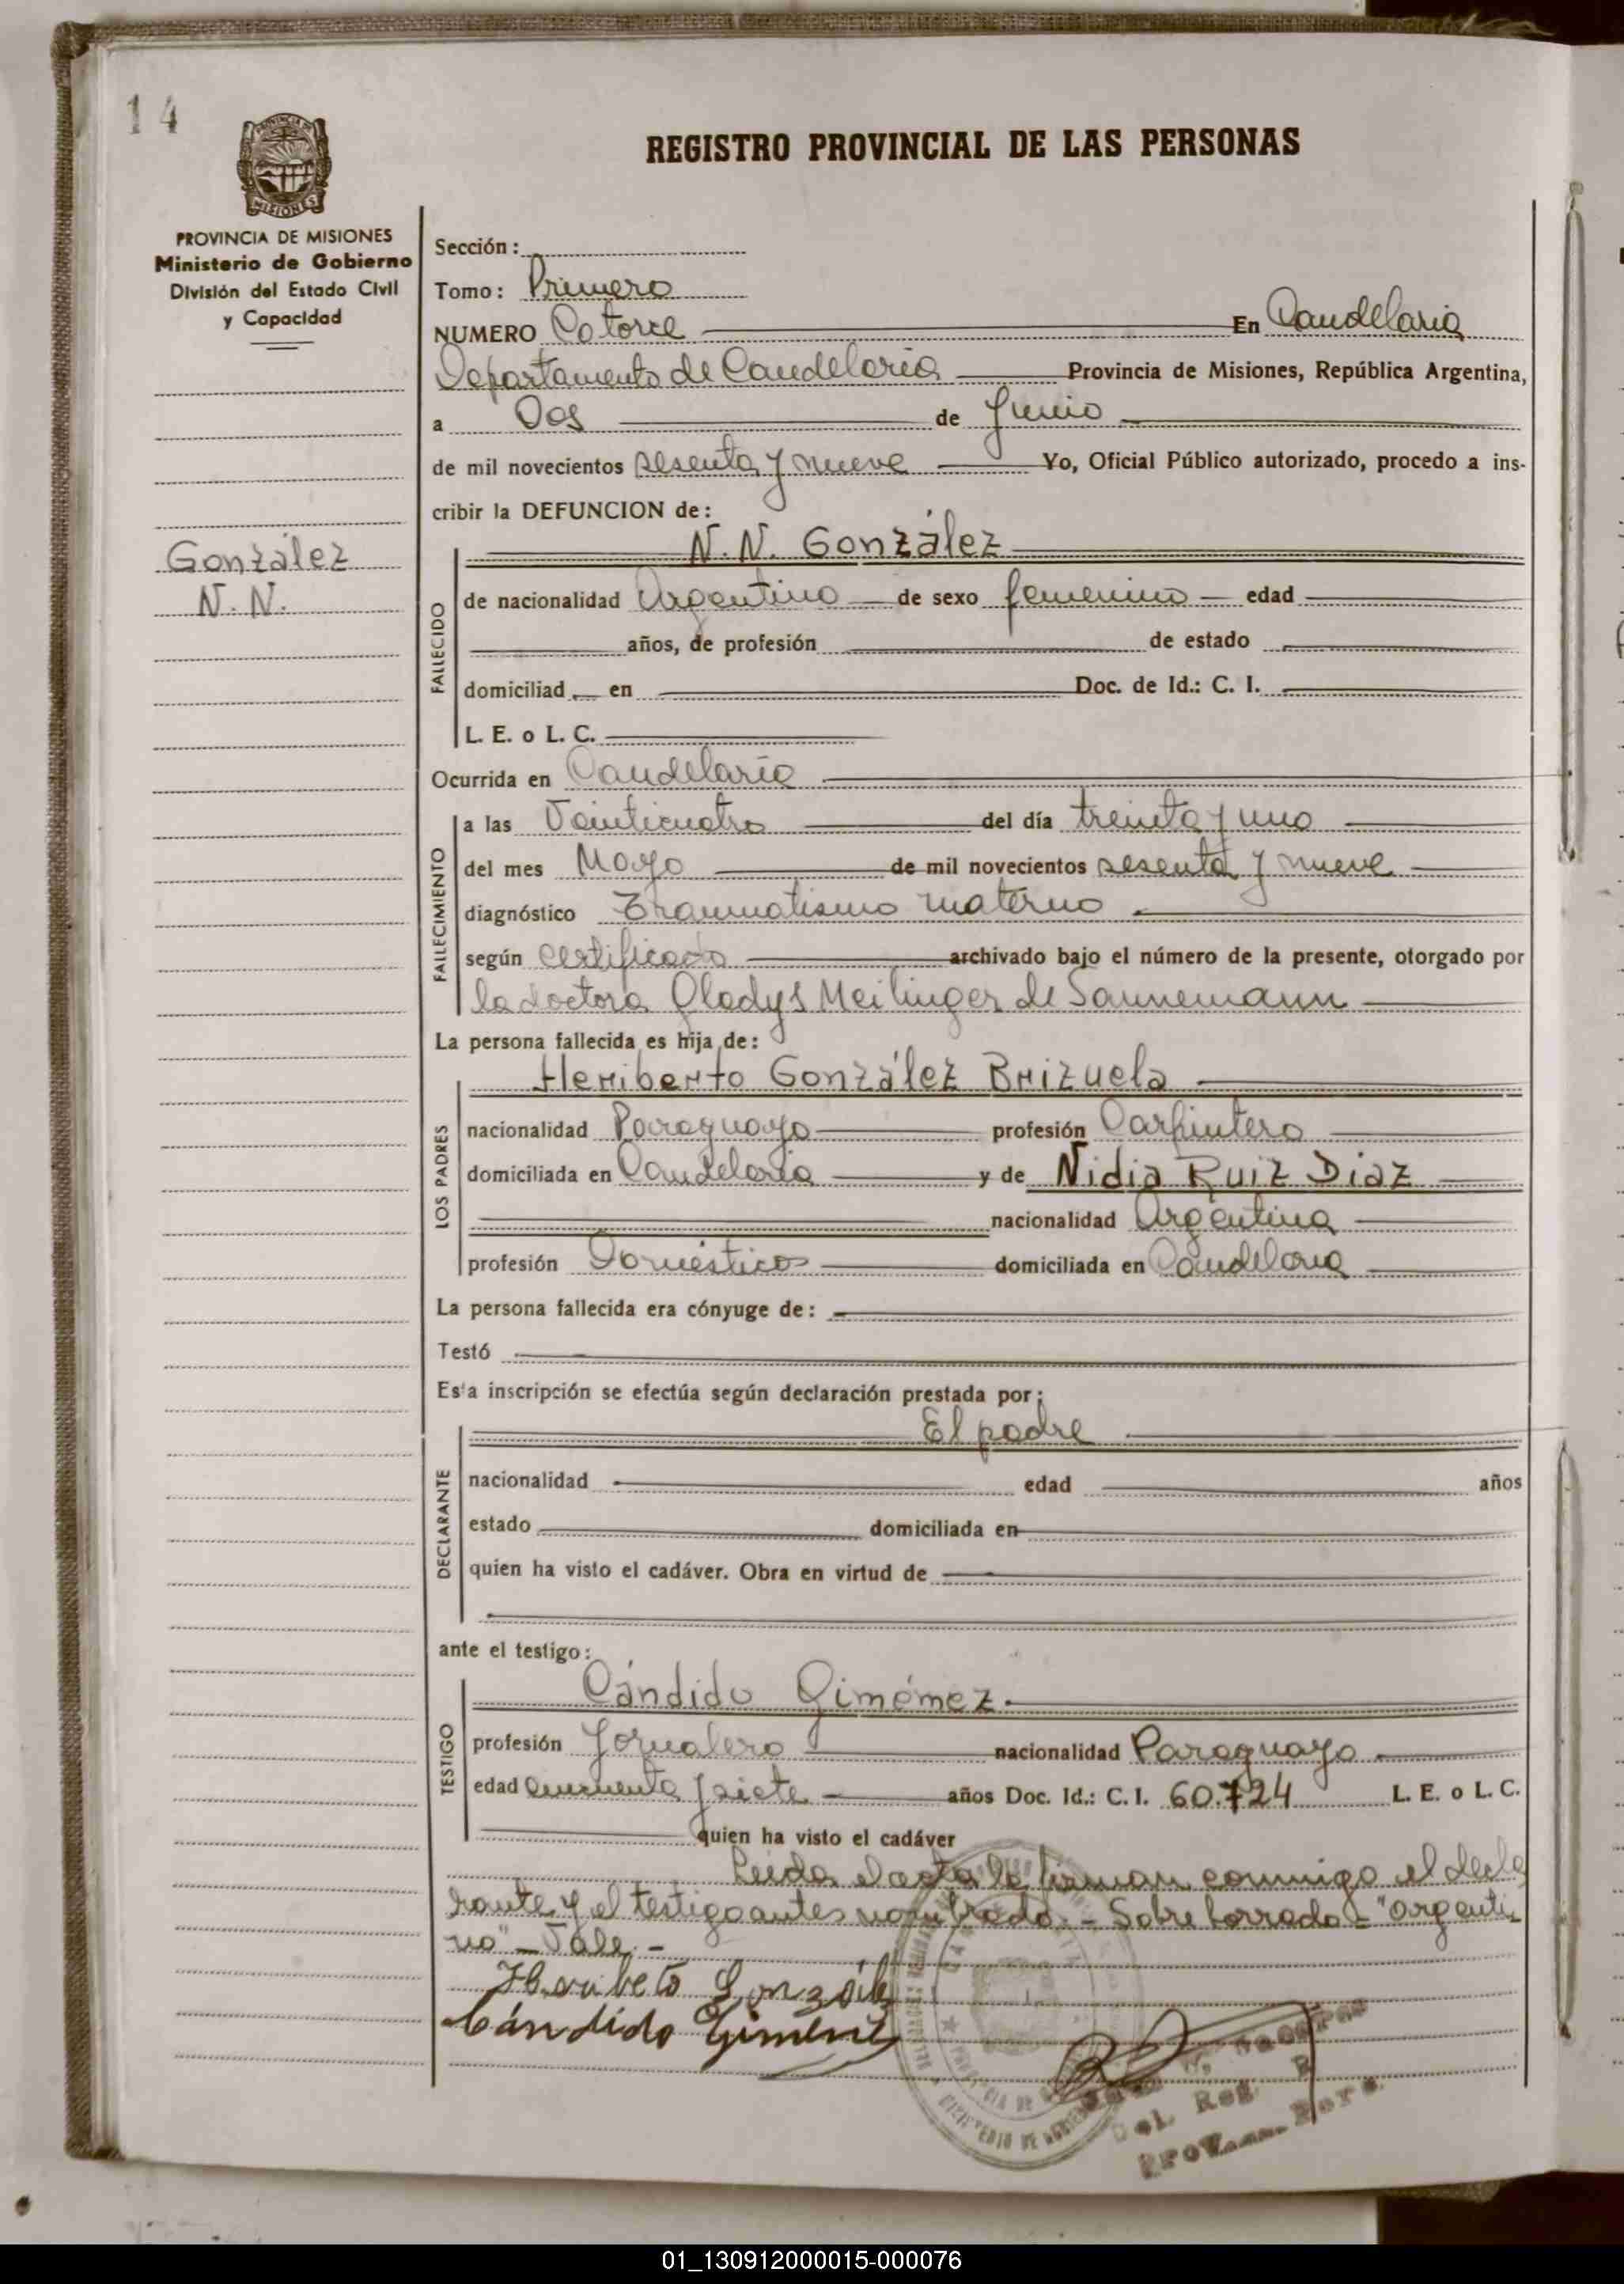 14
PROVINCIA DE MISIONES
REGISTRO PROVINCIAL DE LAS PERSONAS
PROVINCIA DE MISIONES
Ministerio de Gobierno
División del Estado Civil
y Capacidad
González
N. N.
Sección:
Tomo: Primero
NUMERO Catorce En Candelaria
Departamento de Candelaria Provincia de Misiones, República Argentina,
a Dos de Junio
de mil novecientos sesenta y nueve Yo, Oficial Público autorizado, procedo a ins-
cribir la DEFUNCION de:
N. N. González
FALLECIDO
de nacionalidad Argentino de sexo femenino edad
años, de profesión de estado
domiciliad en Doc. de Id.: C. I.
L. E. o L. C.
Ocurrida en Candelaria
FALLECIMIENTO
a las Veinticuatro del día treinta y uno
del mes Mayo de mil novecientos sesenta y nueve
diagnóstico Traumatismo materno
según certificado archivado bajo el número de la presente, otorgado por
la doctora Gladys Meilinger de Sannemann
La persona fallecida es hija de:
LOS PADRES
Heriberto González Brizuela
nacionalidad Paraguayo profesión Carpintero
domiciliada en Candelaria y de Nidia Ruiz Diaz
nacionalidad Argentina
profesión Doméstico domiciliada en Candelaria
La persona fallecida era cónyuge de:
Testó
Esta inscripción se efectúa según declaración prestada por:
El padre
DECLARANTE
nacionalidad edad años
estado domiciliada en
quien ha visto el cadáver. Obra en virtud de
ante el testigo:
Cándido Giménez.
TESTIGO
profesión Jornalero nacionalidad Paraguayo
edad cincuenta y siete años Doc. Id.: C. I. 60.724 L. E. o L. C.
quien ha visto el cadáver
Leída el acta la firman conmigo el decla
rante y el testigo antes nombrado. - Sobre borrado = "Argenti
no" - Vale. -
Heriberto González
Cándido Giménez
Del. Reg.
01_130912000015-000076